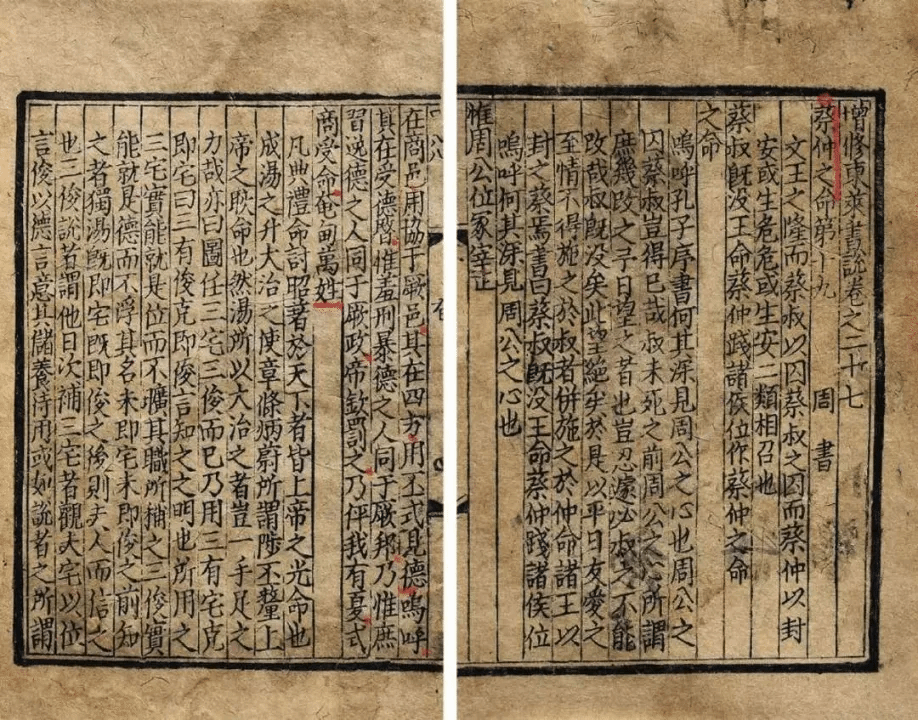 增修東萊書說卷之二十七
蔡仲之命第十九 周 書
文王之隆而蔡叔以囚蔡叔之囚而蔡仲以封
安或生危危或生安二類相召也
蔡叔旣没王命蔡仲踐諸侯位作蔡仲之命
之命
嗚呼孔子序書何其深見周公之心也周公之
囚蔡叔豈得已哉叔未死之前周公之心所謂
庶幾改之予日望之者也豈忍遽必叔之不能
改哉叔旣没矣此望絶矣於是以平日友愛之
至情不得施之於叔者併施之於仲命諸王以
封之蔡焉書曰蔡叔旣没王命蔡仲踐諸侯位
嗚呼何其深見周公之心也
惟周公位冢宰正
在商邑用協于厥邑其在四方用丕式見德嗚呼
其在受德暋惟羞刑暴德之人同于厥邦乃惟庶
習逸德之人同于厥政帝欽罰之乃伻我有夏式
商受命奄甸萬姓
凡典禮命討昭著於天下者皆上帝之光命也
成湯之升大治之使章條炳蔚所謂陟丕釐上
帝之耿命也然湯所以大治之者豈一手足之
力哉亦曰圖任三宅三俊而已乃用三有宅克
即宅曰三有俊克即俊言知之之明也所用之
三宅實能就是位而不曠其職所稱之三俊實
能就是德而不浮其名未即宅未即俊之前知
之者獨湯旣即宅旣即俊之後則夫人而信之
也三俊說者謂他日次補三宅者觀夫宅以位
言俊以德言意其儲養待用或如說者之所謂